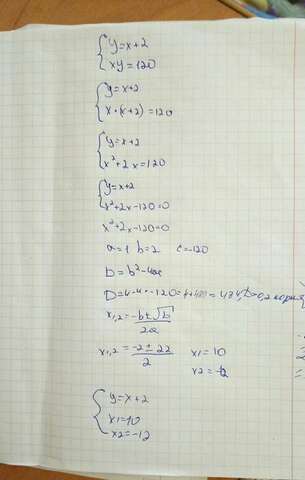 y=x+2
xy=120
y=x+2
x·(x+2)=120
y=x+2
x²+2x=120
y=x+2
x²+2x-120=0
x²+2x-120=0
a=1 b=2 c=-120
D=b²-4ac
D=4-4·-120=4+480=484 D>0, 2 корня
x1,2=-b±√D/2a
x1,2=-2±22/2 x1=10
x2=-12
y=x+2
x1=10
x2=-12